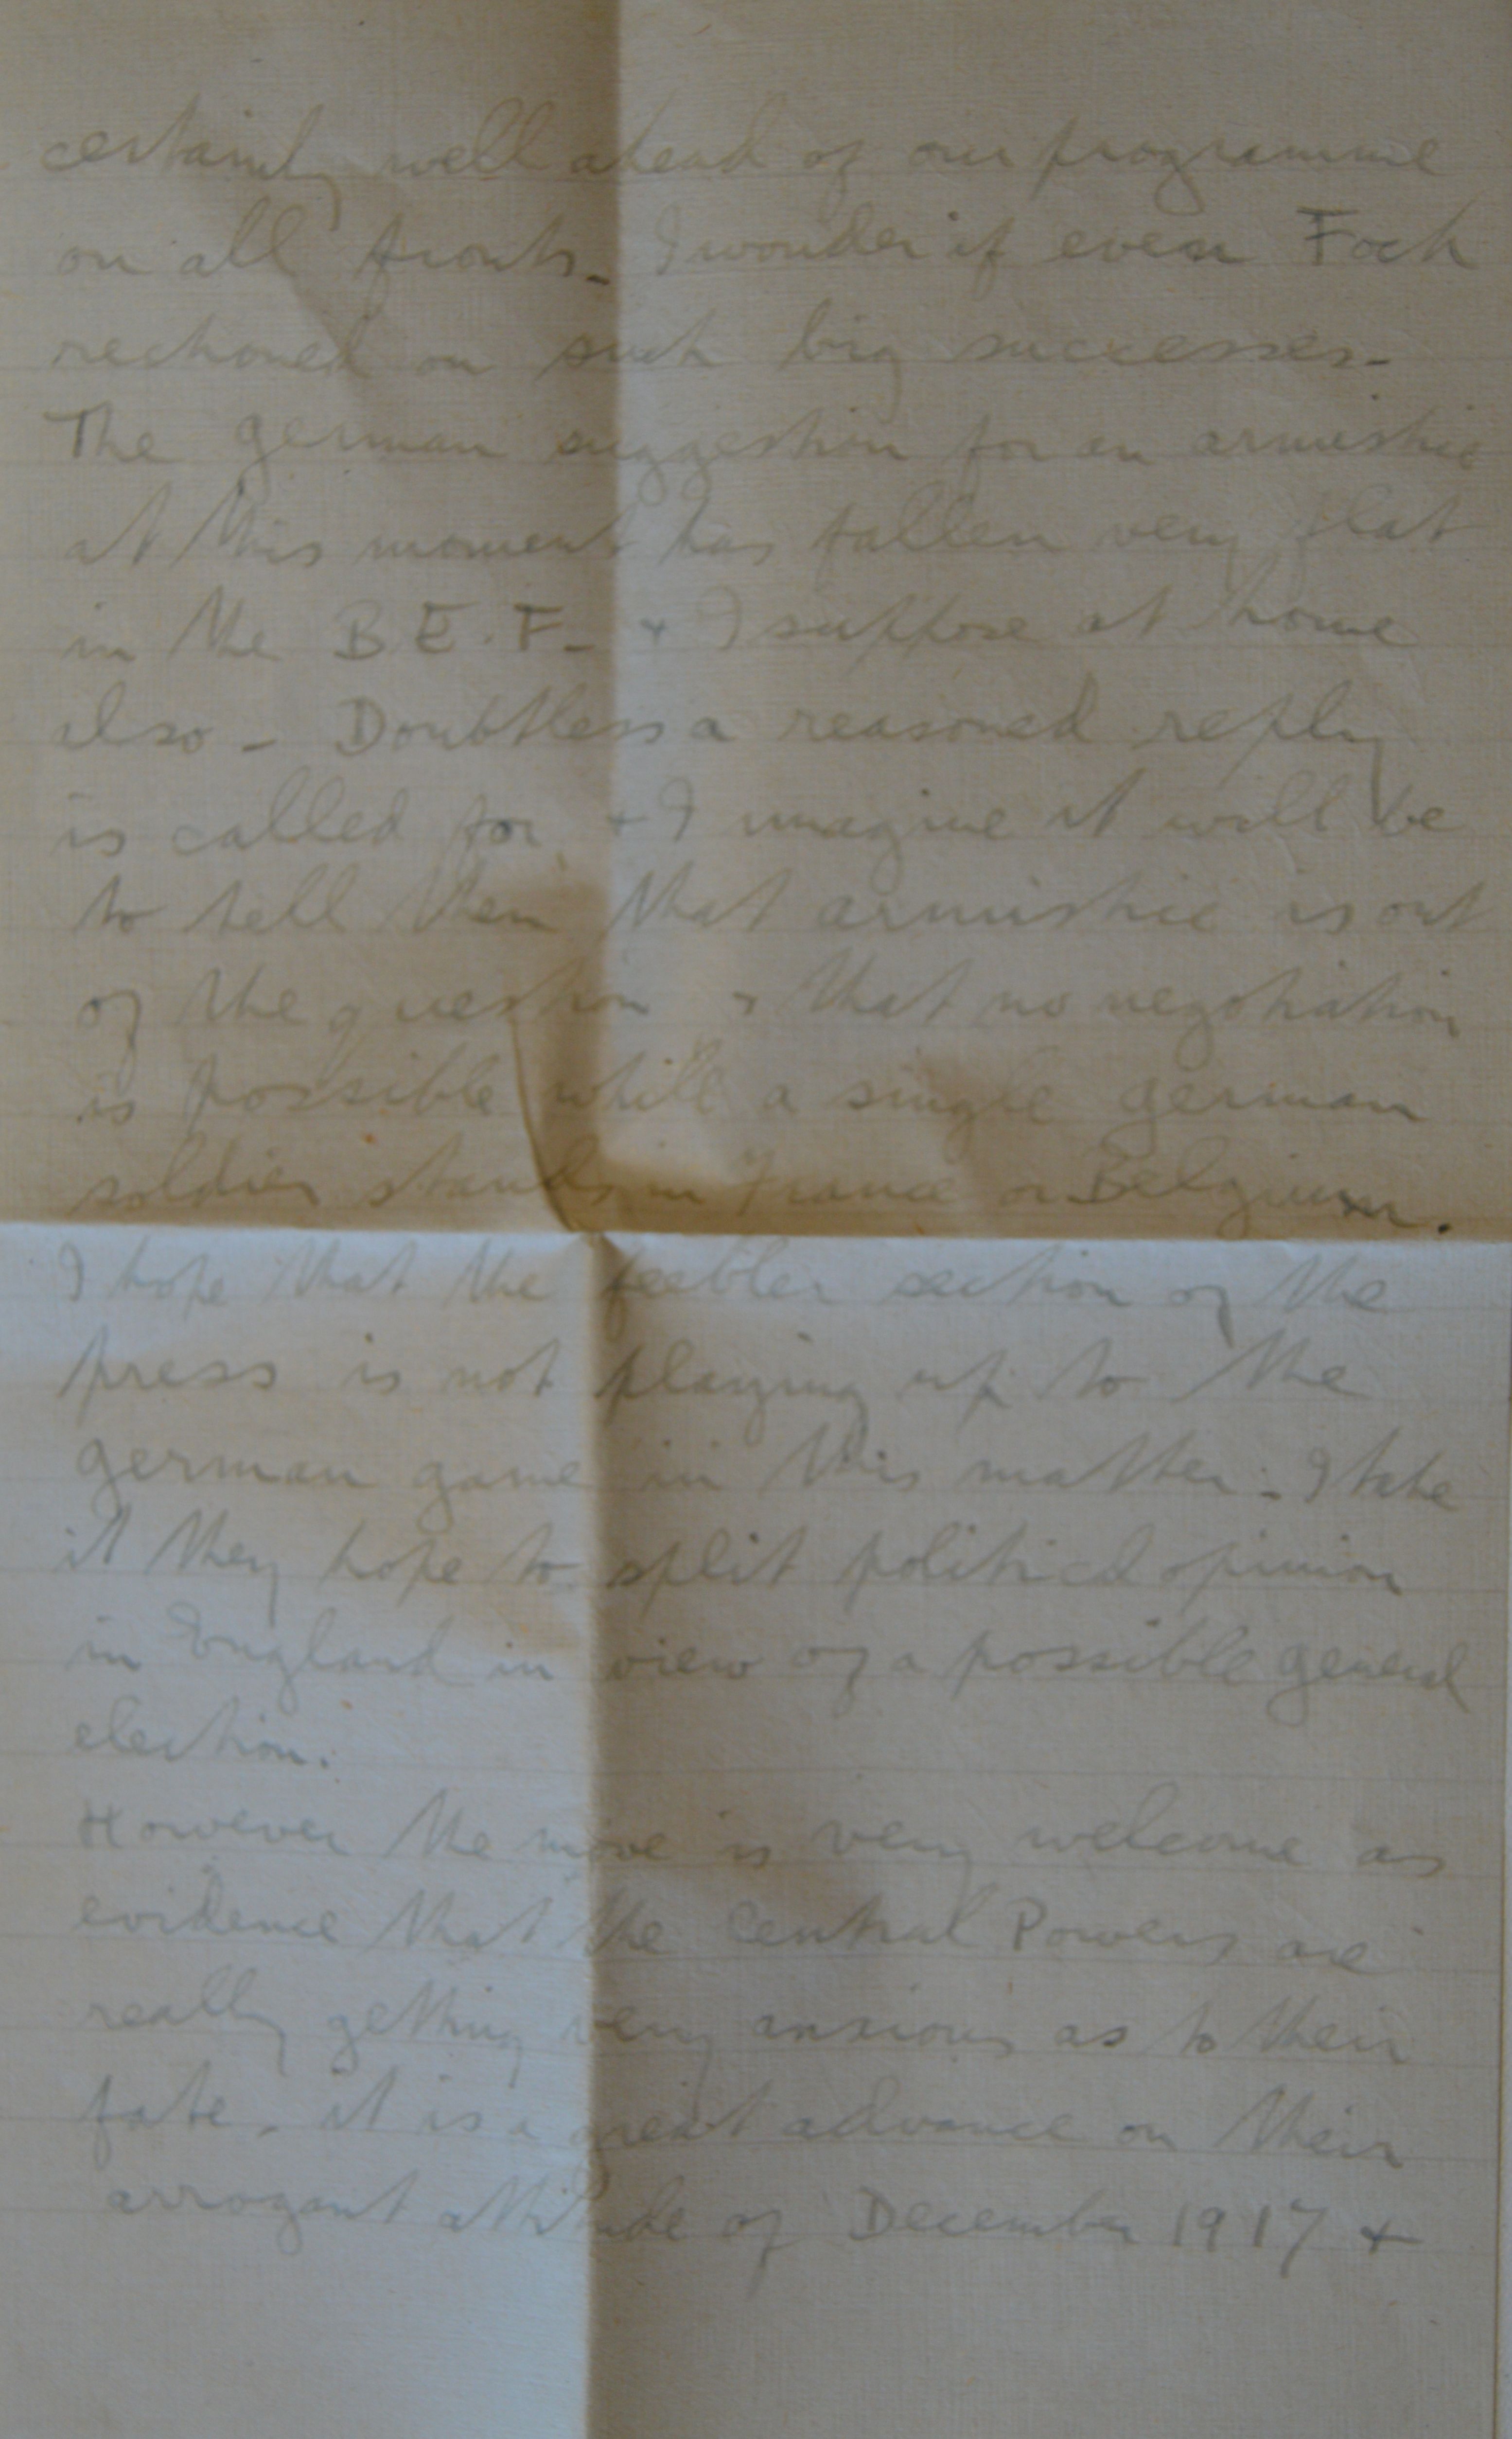 certainly well ahead of our programme
on all fronts - I wonder if even Foch
reckoned on such big successes -
The german suggestion for an armistice
at this moment has fallen very flat
in the B.E.F. - + I suppose at home
also - Doubtless a reasoned reply
is called for + I imagine it will be
to tell them that armistice is out
of the question + that no negotiation
is possible while a single german
soldier stands in France or Belgium.
I hope that the feebler section of the
press is not playing up to the
german game in this matter - I take
it they hope to split political opinion
in England in view of a possible general
election.
However the move is very welcome as
evidence that the Central Powers are
really getting very anxious as to their
fate - it is a great advance on their
arrogant attitude of December 1917 +